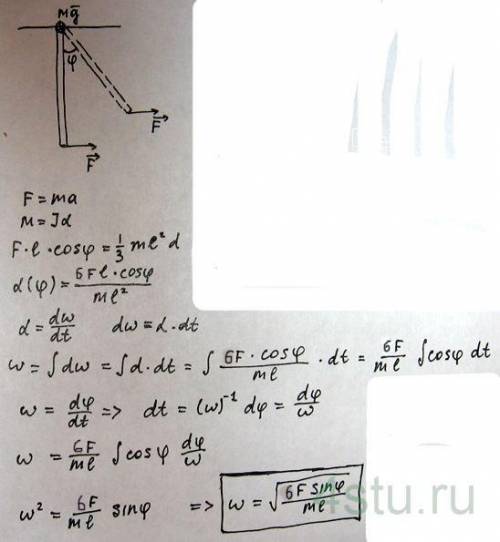 Mg̅
φ
F⃗
F⃗
F = ma
M = Jα
F·l·cosφ = 1/3 ml² α
α(φ) = 6Fl·cosφ / ml²
α = dω/dt   dω = α·dt
ω = ∫dω = ∫α·dt = ∫ 6F·cosφ / ml · dt = 6F/ml ∫cosφ dt
ω = dφ/dt => dt = (ω)⁻¹ dφ = dφ/ω
ω = 6F/ml ∫cosφ dφ/ω
ω² = 6F/ml sinφ => ω = √(6F sinφ / ml)
4stu.ru